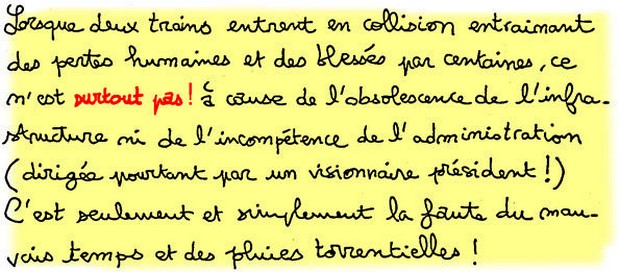 Lorsque deux trains entrent en collision entrainant
des pertes humaines et des blessés par centaines, ce
n'est surtout pas! à cause de l'obsolescence de l'infra-
structure ni de l'incompétence de l'administration
(dirigée pourtant par un visionnaire président!)
C'est seulement et simplement la faute du mau-
vais temps et des pluies torrentielles!